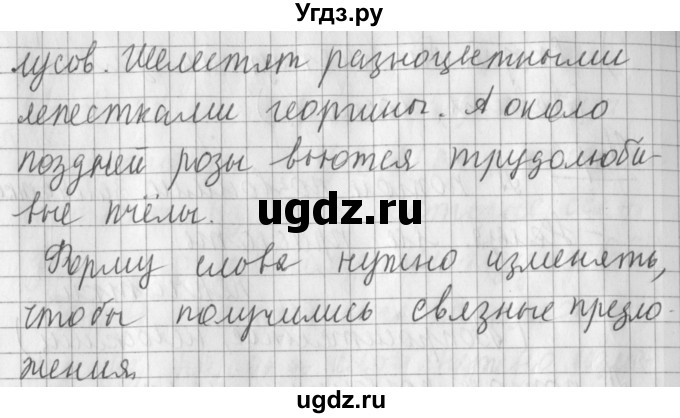 Угдз.ру
лусов. Шелестят разноцветными
лепестками георгины. А около
поздней розы вьются трудолюби-
вые пчёлы.
ugdz.ru
Форму слова нужно изменять,
чтобы получились связные предло-
жения.
ugdz.ru